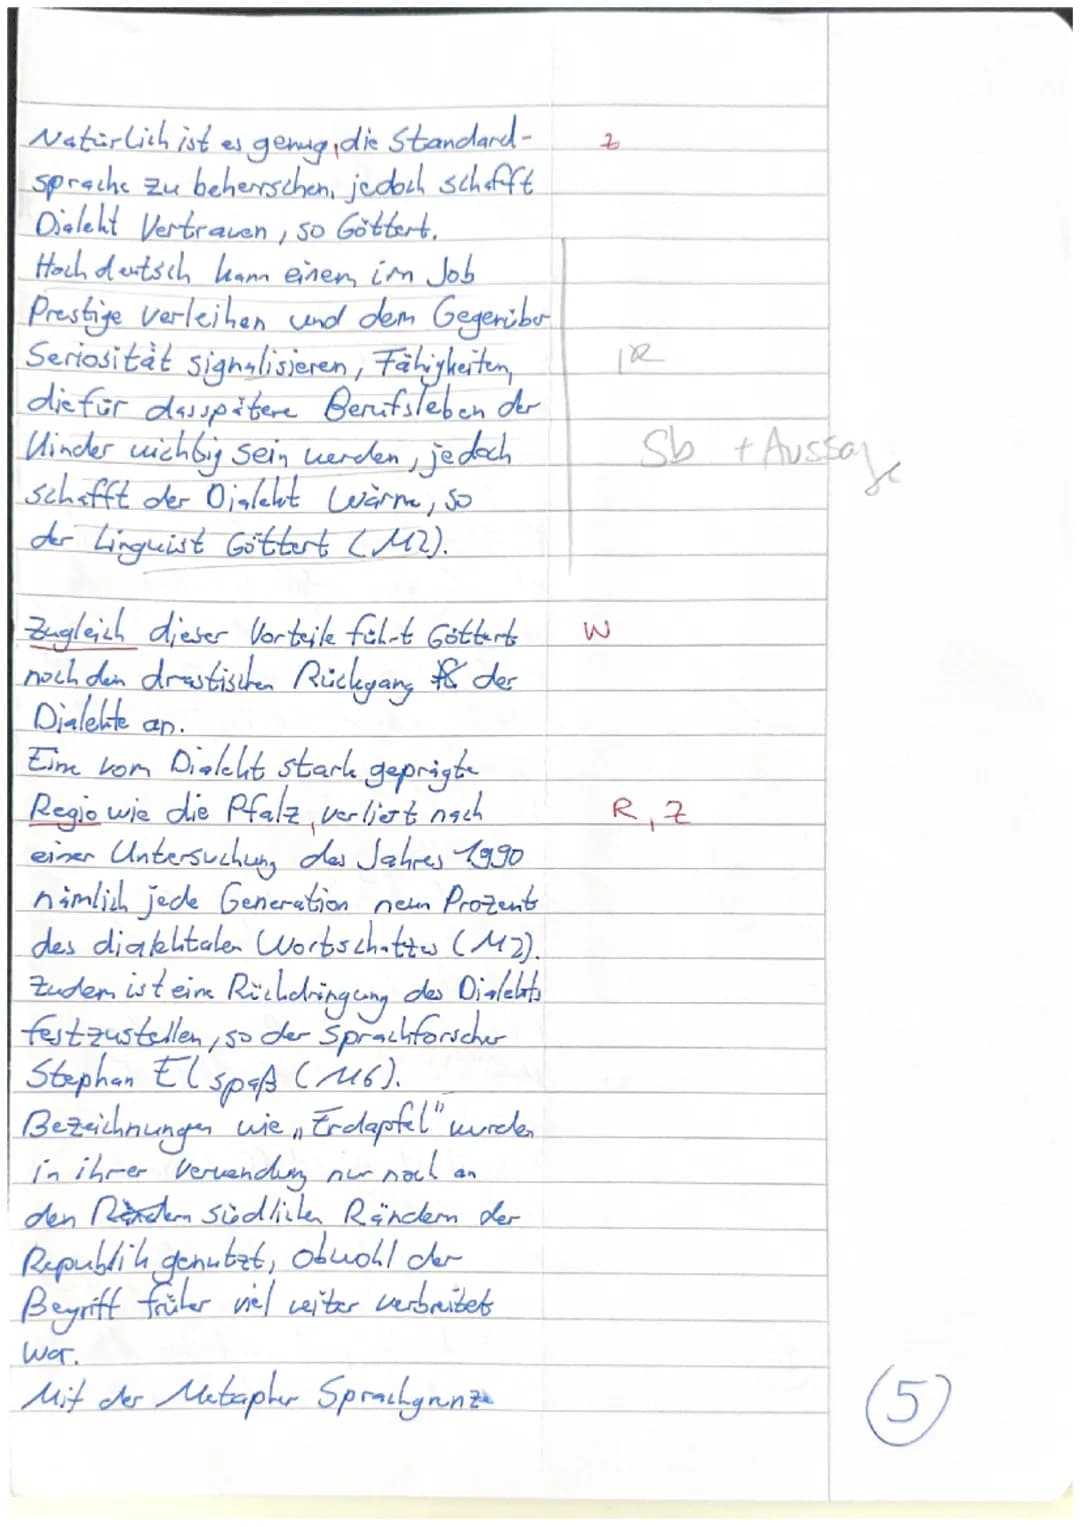 Natürlich ist es genug, die Standard- z
sprache zu beherrschen, jedoch schafft
Dialekt Vertrauen, so Göttert.
Hochdeutsch kann einem im Job
Prestige verleihen und dem Gegenüber
Seriosität signalisieren, Fähigkeiten, R
die für das spätere Berufsleben der
Kinder wichtig sein werden, jedoch Sb + Aussage
schafft der Dialekt Wärme, so
der Linguist Göttert (M2).
Zugleich dieser Vorteile führt Göttert W
noch den drastischen Rückgang der
Dialekte an.
Eine vom Dialekt stark geprägte
Regio wie die Pfalz, verliert nach R, Z
einer Untersuchung des Jahres 1990
nämlich jede Generation neun Prozent
des dialektalen Wortschattes (M2).
Zudem ist eine Rückdringung des Dialekts
festzustellen, so der Sprachforscher
Stephan Elspaß (M6).
Bezeichnungen wie „Erdapfel" wurden
in ihrer Verwendung nur noch an
den Rändern südlichen Rändern der
Republik genutzt, obwohl der
Begriff früher viel weiter verbreitet
war.
Mit der Metapher Sprachgrenze
5